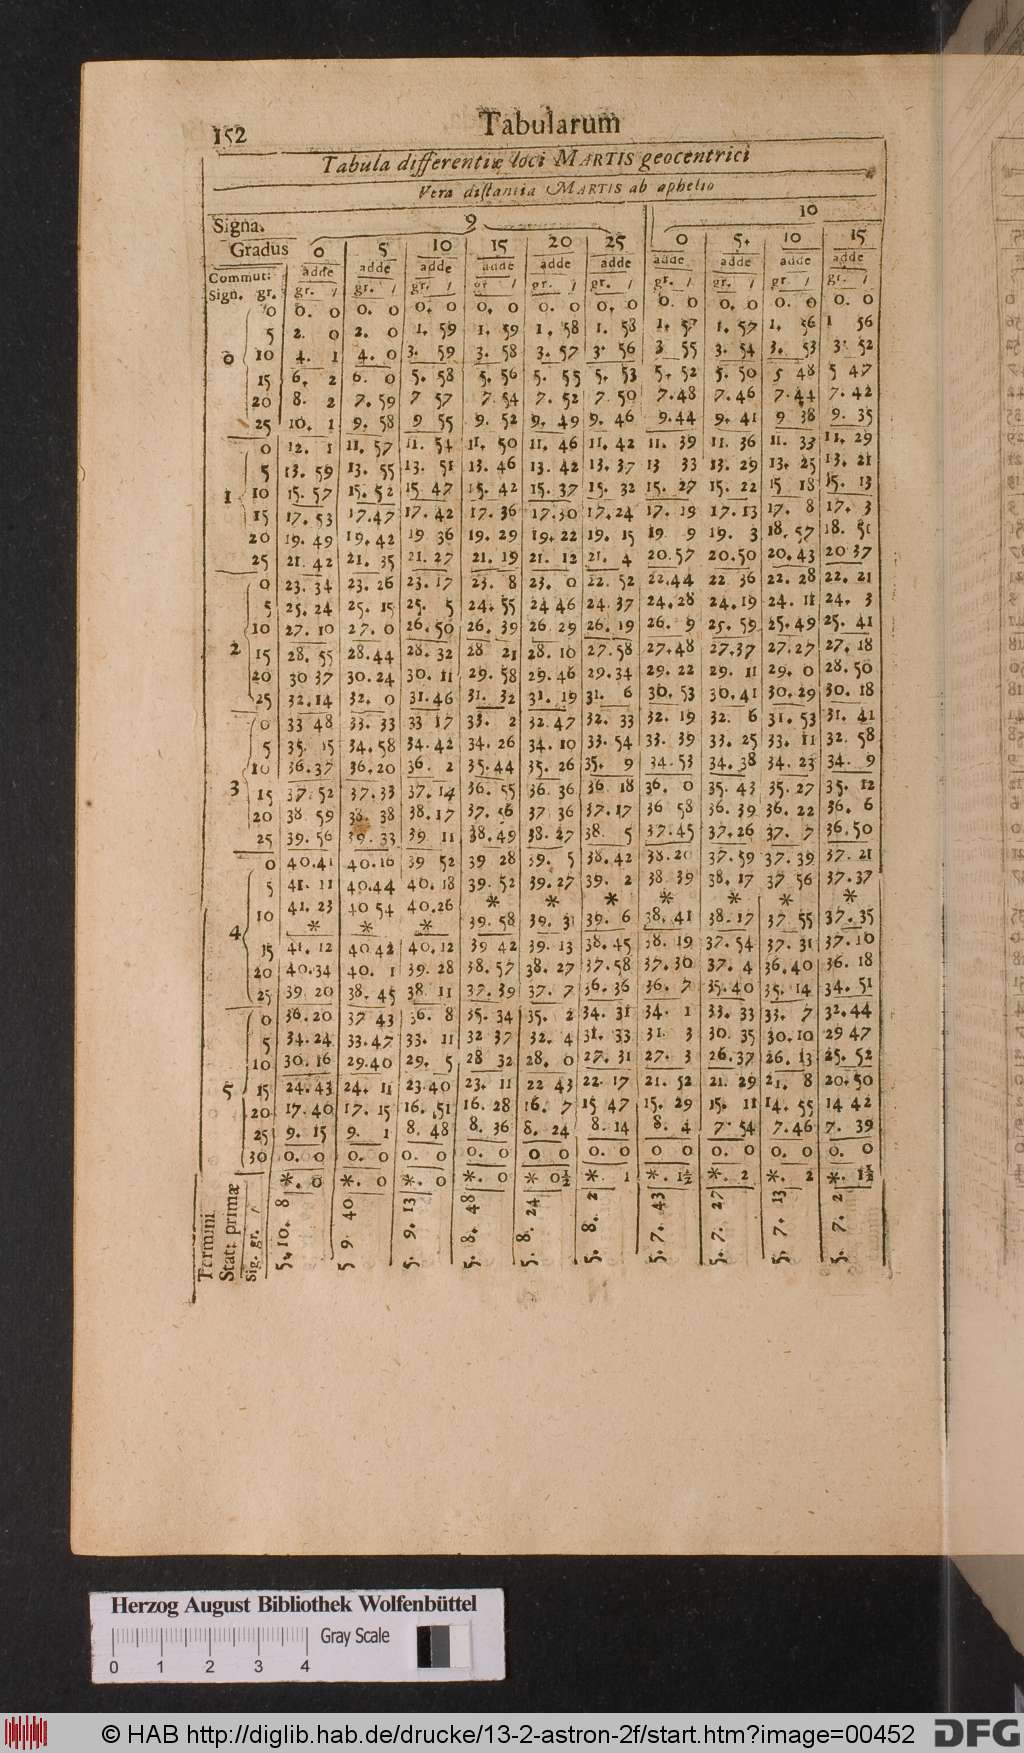 152
Tabularum
Tabula differentiæ loci MARTIS geocentrici
Vera distantia MARTIS ab aphelio
Signa. 9 10
Gradus 0 5 10 15 20 25 0 5. 10 15
Commut: adde adde adde adde adde adde adde adde adde adde
Sign. gr. gr. / gr. / gr. / gr / gr. / gr. / gr. / gr. / gr. / gr. /
0 0. 0 0. 0 0. 0 0. 0 0. 0 0. 0 0. 0 0. 0 0. 0 0. 0
5 2. 0 2. 0 1. 59 1. 59 1. 58 1. 58 1. 57 1. 57 1. 56 1 56
0 10 4. 1 4. 0 3. 59 3. 58 3. 57 3. 56 3 55 3. 54 3. 53 3. 52
15 6. 2 6. 0 5. 58 5. 56 5. 55 5. 53 5. 52 5. 50 5 48 5 47
20 8. 2 7. 59 7 57 7. 54 7. 52 7. 50 7. 48 7. 46 7. 44 7. 42
25 10. 1 9. 58 9 55 9. 52 9. 49 9. 46 9. 44 9. 41 9 38 9. 35
0 12. 1 11. 57 11. 54 11. 50 11. 46 11. 42 11. 39 11. 36 11. 33 11. 29
5 13. 59 13. 55 13. 51 13. 46 13. 42 13. 37 13 33 13. 29 13. 25 13. 21
1 10 15. 57 15. 52 15 47 15. 42 15. 37 15. 32 15. 27 15. 22 15 18 15. 13
15 17. 53 17. 47 17. 42 17. 36 17. 30 17. 24 17. 19 17. 13 17. 8 17. 3
20 19. 49 19. 42 19 36 19. 29 19. 22 19. 15 19 9 19. 3 18. 57 18. 51
25 21. 42 21. 35 21. 27 21. 19 21. 12 21. 4 20. 57 20. 50 20. 43 20 37
0 23. 34 23. 26 23. 17 23. 8 23. 0 22. 52 22. 44 22 36 22. 28 22. 21
5 25. 24 25. 15 25. 5 24. 55 24 46 24. 37 24. 28 24. 19 24. 11 24. 3
10 27. 10 27. 0 26. 50 26. 39 26 29 26. 19 26. 9 25. 59 25. 49 25. 41
2 15 28. 55 28. 44 28. 32 28 21 28. 10 27. 58 27. 48 27. 37 27. 27 27. 18
20 30 37 30. 24 30. 11 29. 58 29. 46 29. 34 29. 22 29. 11 29. 0 28. 50
25 32. 14 32. 0 31. 46 31. 32 31. 19 31. 6 30. 53 30. 41 30. 29 30. 18
0 33 48 33. 33 33 17 33. 2 32. 47 32. 33 32. 19 32. 6 31. 53 31. 41
5 35. 15 34. 58 34. 42 34. 26 34. 10 33. 54 33. 39 33. 25 33. 11 32. 58
10 36. 37 36. 20 36. 2 35. 44 35. 26 35. 9 34. 53 34. 38 34. 23 34. 9
3 15 37. 52 37. 33 37. 14 36. 55 36. 36 36 18 36. 0 35. 43 35. 27 35. 12
20 38. 59 38. 38 38. 17 37. 56 37 36 37. 17 36 58 36. 39 36. 22 36. 6
25 39. 56 39. 33 39 11 38. 49 38. 27 38. 5 37. 45 37. 26 37. 7 36. 50
0 40. 41 40. 16 39 52 39 28 39. 5 38. 42 38. 20 37. 59 37. 39 37. 21
5 41. 11 40. 44 40. 18 39. 52 39. 27 39. 2 38 39 38. 17 37 56 37. 37
10 41. 23 * 40 54 * 40. 26 * * 39. 58 * 39. 31 * 39. 6 * 38. 41 * 38. 17 * 37. 55 * 37. 35
4 15 41. 12 40 42 40. 12 39 42 39. 13 38. 45 38. 19 37. 54 37. 31 37. 10
20 40. 34 40. 1 39. 28 38. 57 38. 27 37. 58 37. 30 37. 4 36. 40 36. 18
25 39. 20 38. 45 38. 11 37. 39 37. 7 36. 36 36. 7 35. 40 35. 14 34. 51
0 36. 20 37 43 36. 8 35. 34 35. 2 34. 31 34. 1 33. 33 33. 7 32. 44
5 34. 24 33. 47 33. 11 32 37 32. 4 31. 33 31. 3 30. 35 30. 10 29 47
10 30. 16 29. 40 29. 5 28 32 28. 0 27. 31 27. 3 26. 37 26. 13 25. 52
5 15 24. 43 24. 11 23. 40 23. 11 22 43 22. 17 21. 52 21. 29 21. 8 20. 50
20 17. 40 17. 15 16. 51 16. 28 16. 7 15 47 15. 29 15. 11 14. 55 14 42
25 9. 15 9. 1 8. 48 8. 36 8. 24 8. 14 8. 4 7. 54 7. 46 7. 39
30 0. 0 0. 0 0. 0 0. 0 0 0 0. 0 0. 0 0. 0 0. 0 0. 0
*. 0 *. 0 *. 0 *. 0 * 0½ *. 1 *. 1½ *. 2 *. 2 *. 1½
Termini
Stat: primæ
Sig. gr. /
5. 10. 8
5 9. 40
5. 9. 13
5. 8. 48
5. 8. 24
5. 8. 2
5. 7. 43
5. 7. 27
5. 7. 13
5. 7. 2
Herzog August Bibliothek Wolfenbüttel
Gray Scale
0 1 2 3 4
© HAB http://diglib.hab.de/drucke/13-2-astron-2f/start.htm?image=00452
DFG